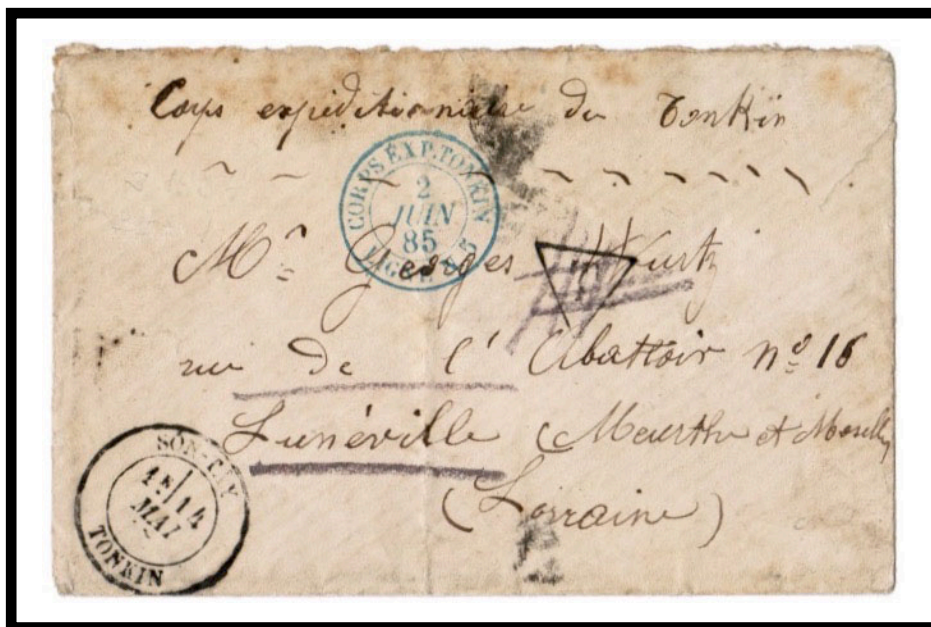 Corps expéditionnaire du Tonkin
CORPS EXP. TONKIN
2
JUIN
85
Mr Georges Wurtz
rue De l' Abattoir nº 16
Lunéville (Meurthe et Moselle
(Lorraine)
SON-TAY
14
MAI
TONKIN